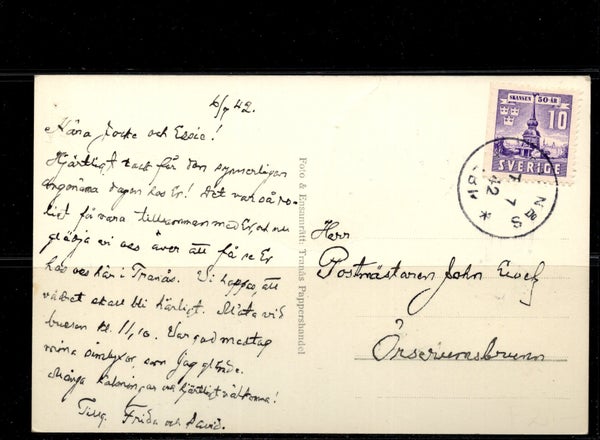 6/7 42.
Kära Jocke och Essie!
Hjärtligt tack för den synnerligen
angenäma dagen hos Er! Det var så ro-
ligt få vara tillsammans med Er och nu
glädja vi oss över att få se Er
hos oss här i Tranås. Vi hoppas, att
vädret skall bli härligt. Möta vid
bussen kl. 11,10. Var god medtag
mina simbyxor, som jag glömde.
Många hälsningar och hjärtligt välkomna!
Tillg. Frida och David.
Foto & Ensamrätt: Tranås Pappershandel
SKANSEN 50 ÅR
10
SVERIGE
NÄS
7 7
42
Herr
Postmästaren John
Örserumsbrunn